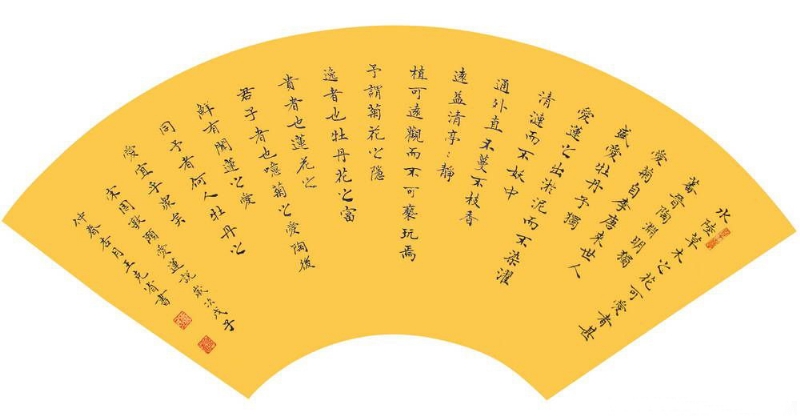 水陸草木之花可愛者甚
蕃晉陶淵明獨
愛菊自李唐來世人
盛愛牡丹予獨
愛蓮之出淤泥而不染濯
清漣而不妖中
通外直不蔓不枝香
遠益清亭〻靜
植可遠觀而不可褻玩焉
予謂菊花之隱
逸者也牡丹花之富
貴者也蓮花之
君子者也噫菊之愛陶後
鮮有聞蓮之愛
同予者何人牡丹之
愛宜乎衆矣
宋周敦頤愛蓮說歲次戊子
仲春杏月王克書